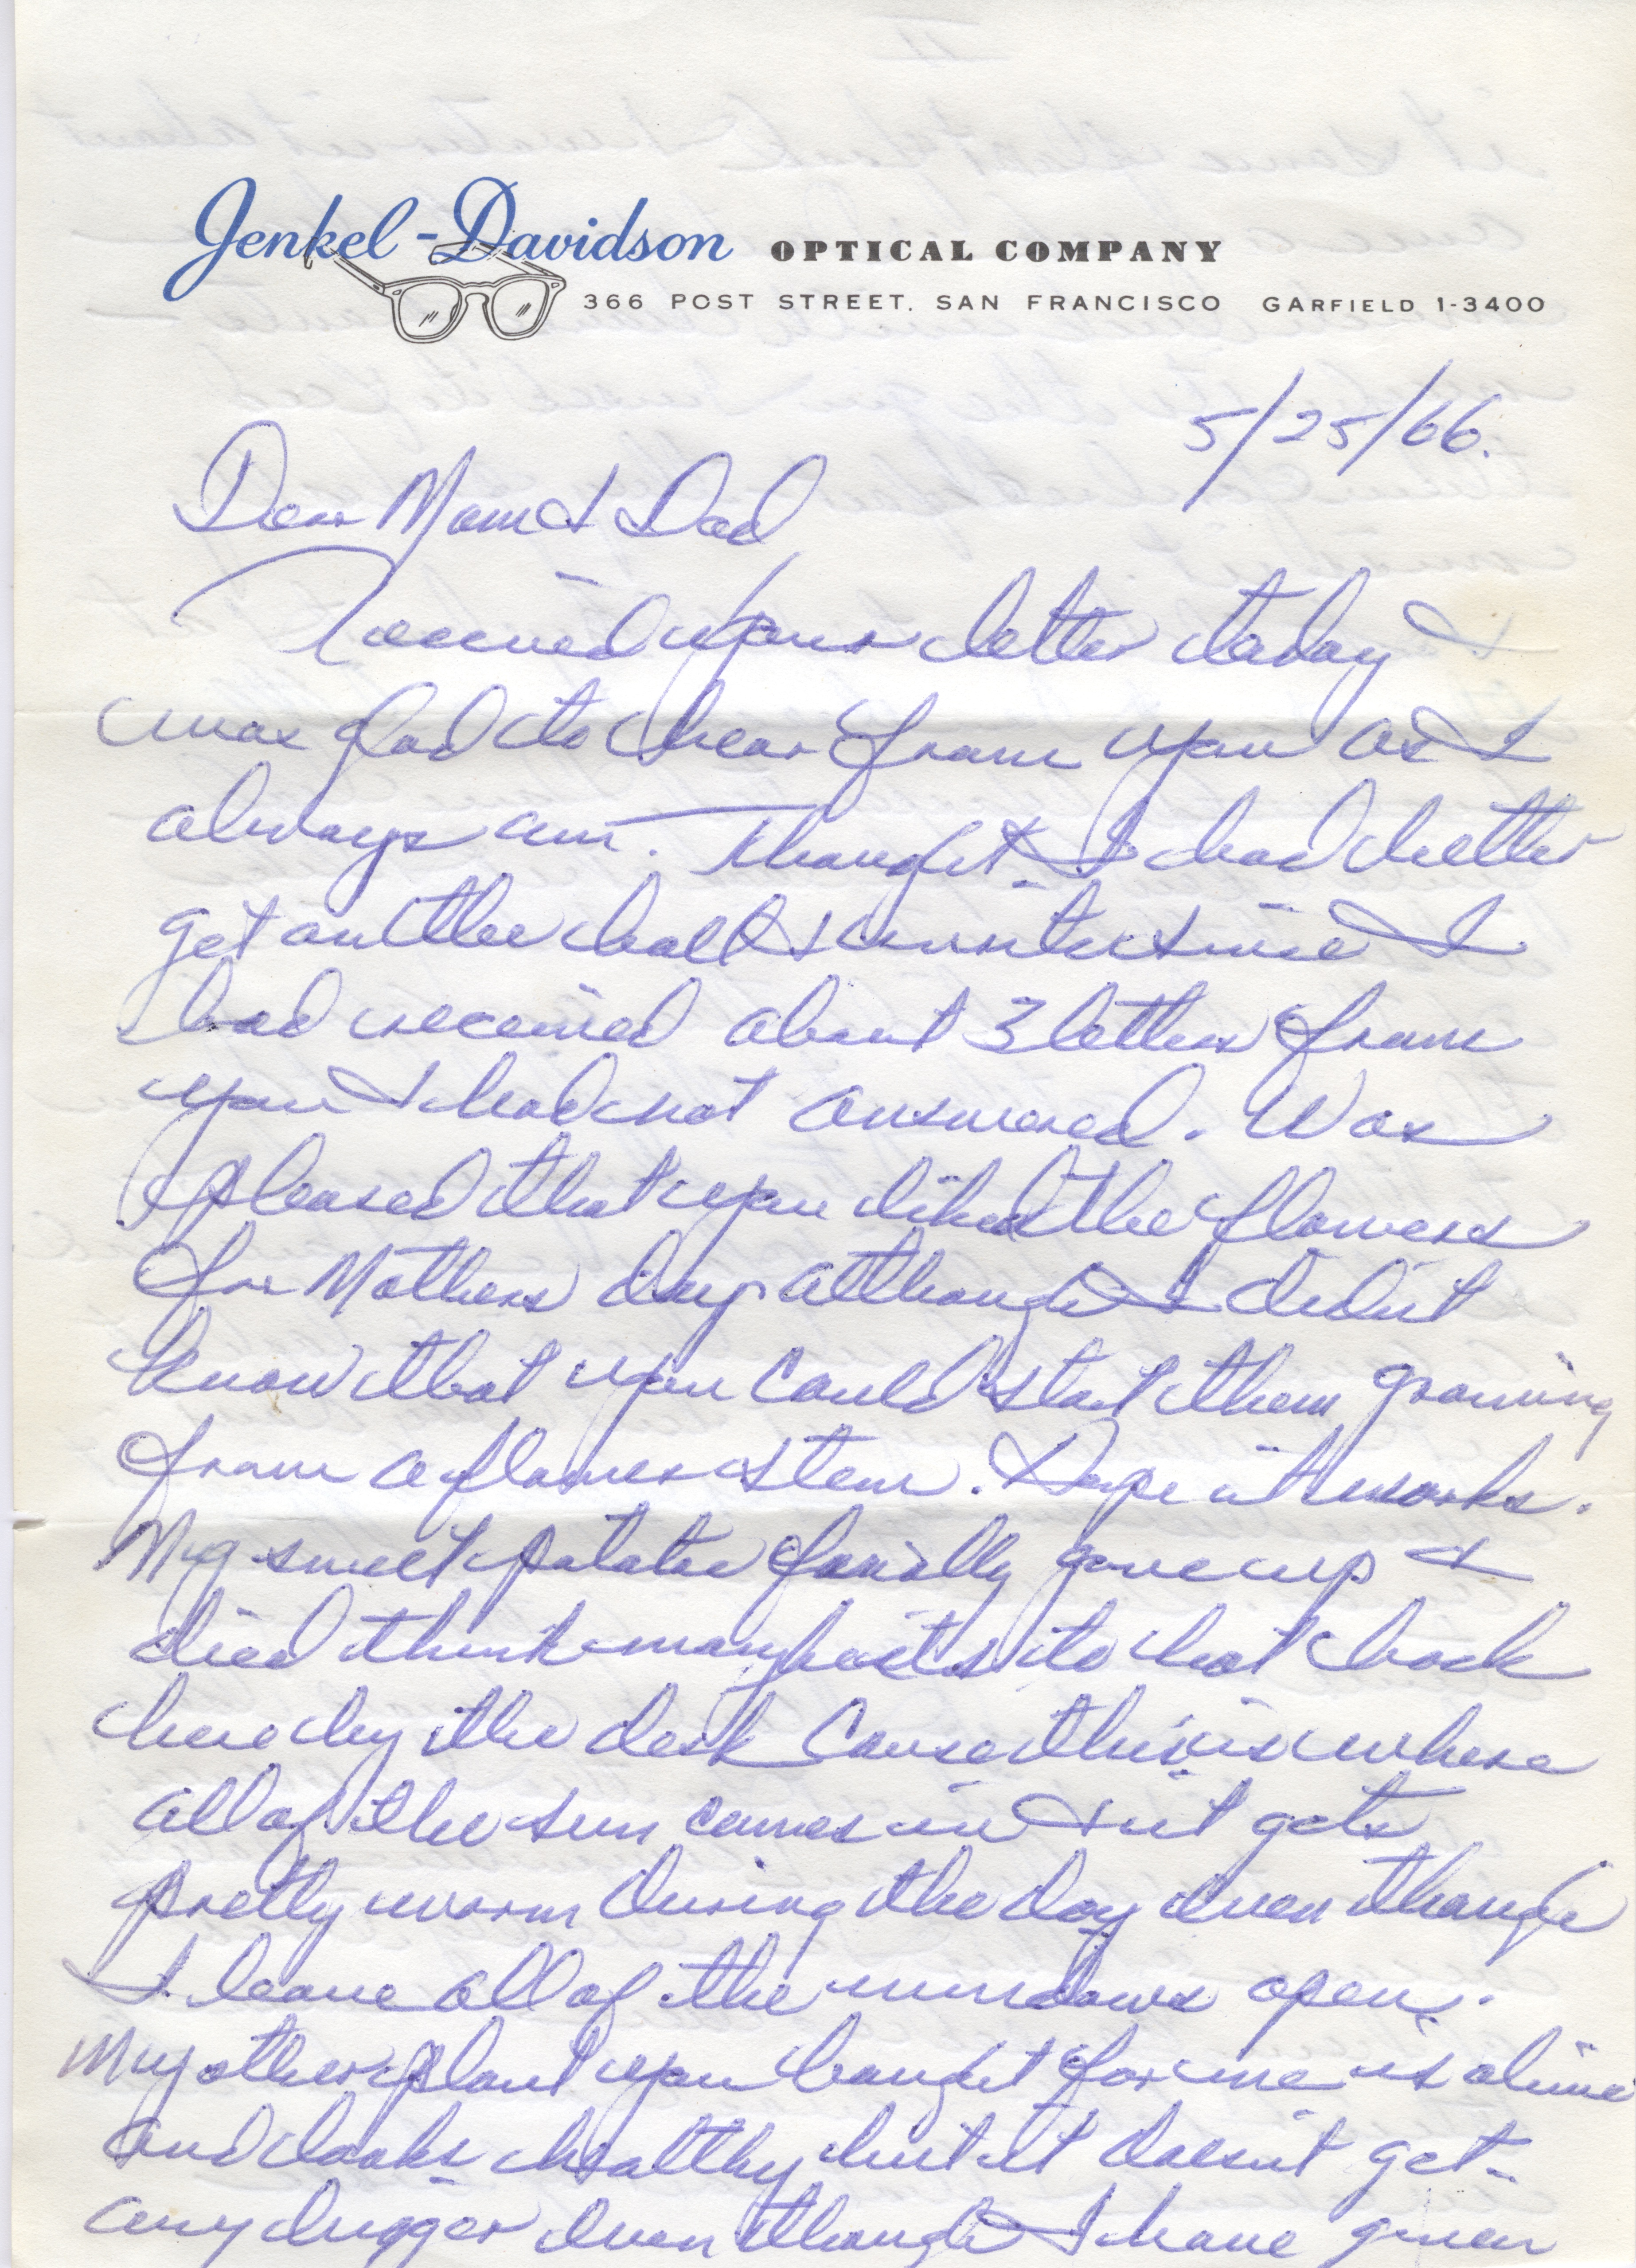 Jenkel-Davidson OPTICAL COMPANY
366 POST STREET, SAN FRANCISCO GARFIELD 1-3400
5/25/66.
Dear Mom & Dad,
Received your letter today &
was glad to hear from you as I
always am. Thought I had better
get on the ball & write since I
had received about 3 letters from
you & had not answered. Was
pleased that you liked the flowers
for Mothers day although I didn't
know that you could start them growing
from a flower stem. Hope it works.
My sweet potatoe finially gave up &
died think maybe its to hot back
here by the desk cause this is where
all of the sun comes in & it gets
pretty warm during the day even though
I leave all of the windows open.
My other plant you bought for me is alive
and looks healthy but it doesn't get
any bigger even though I have given